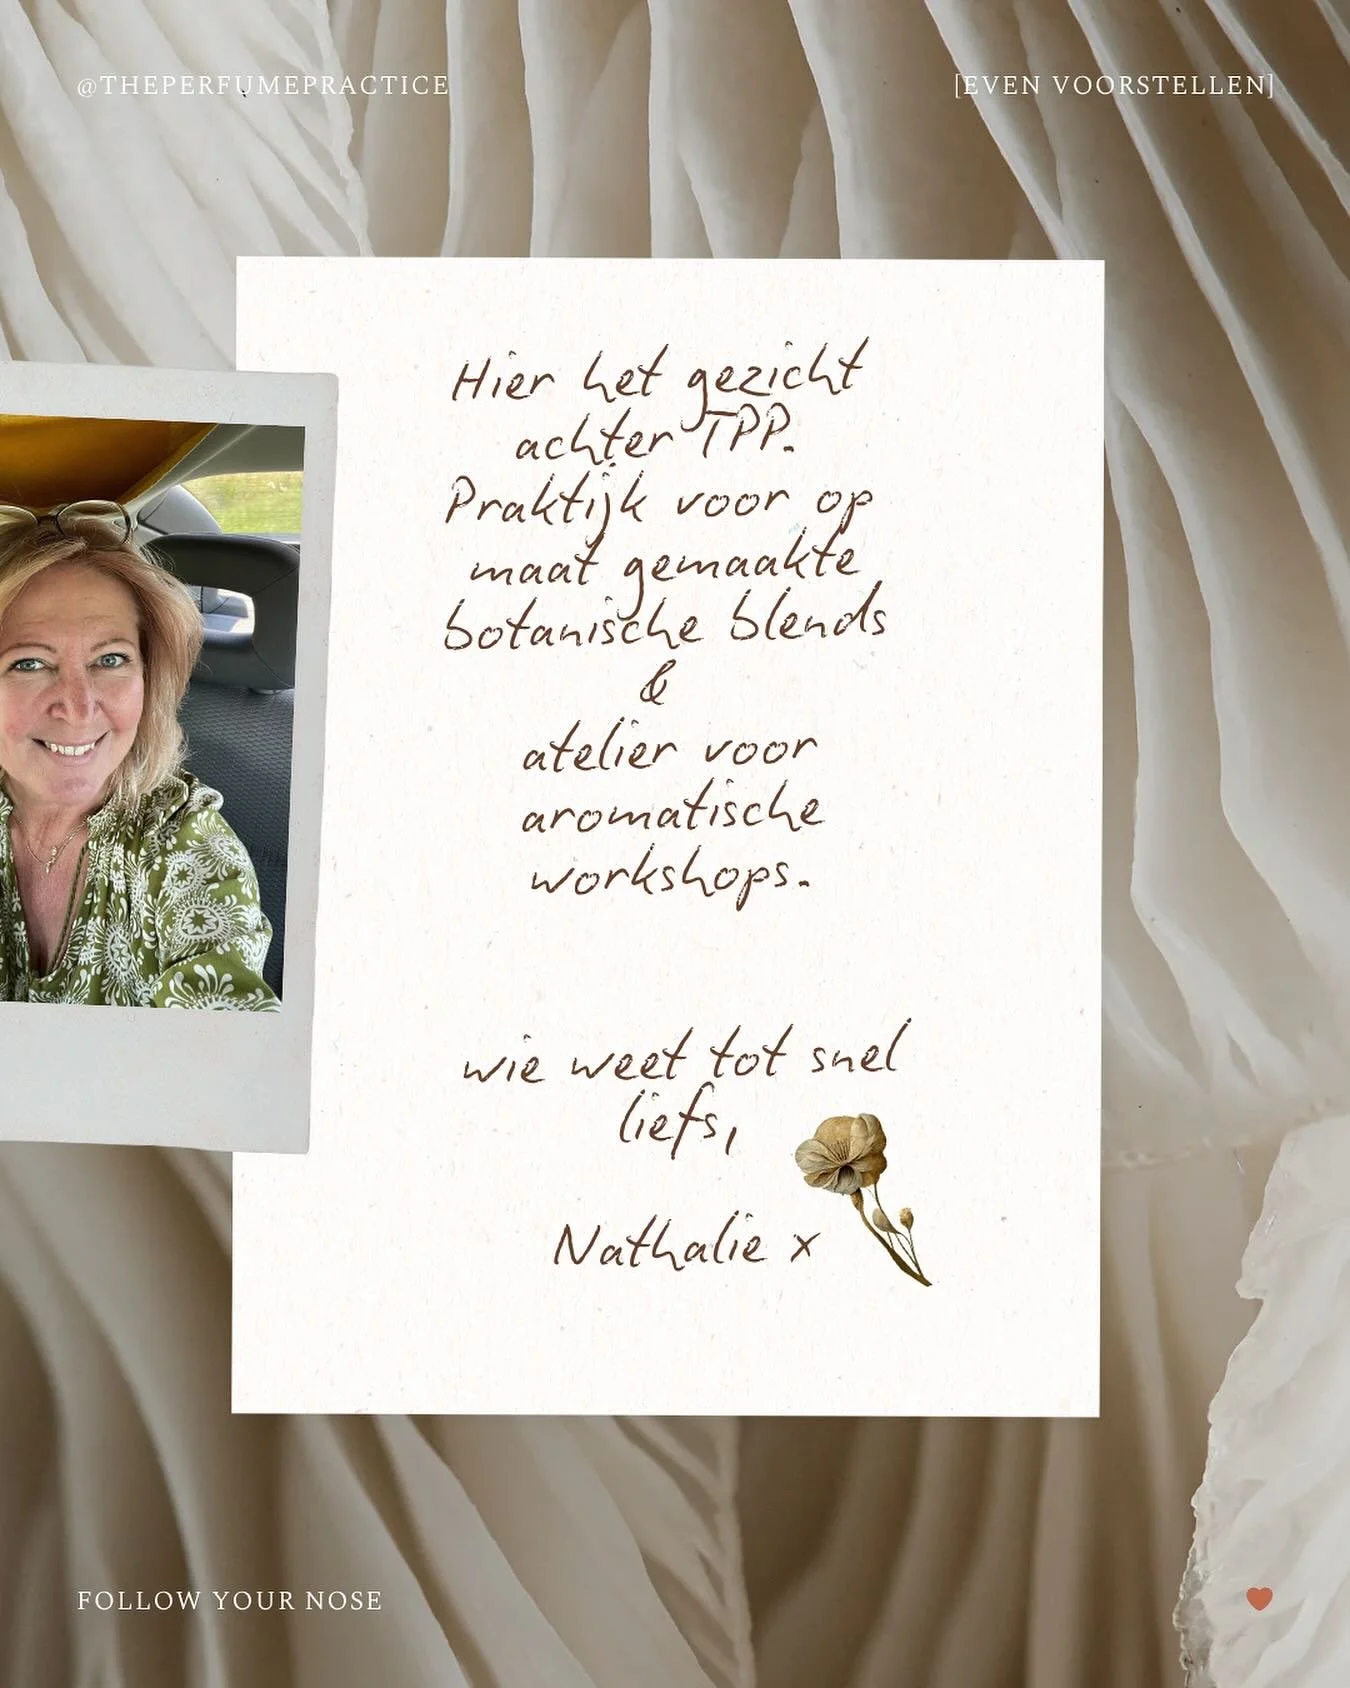 @THEPERFUMEPRACTICE
[EVEN VOORSTELLEN]
Hier het gezicht
achter TPP.
Praktijk voor op
maat gemaakte
botanische blends
&
atelier voor
aromatische
workshops.
wie weet tot snel
liefs,
Nathalie x
FOLLOW YOUR NOSE